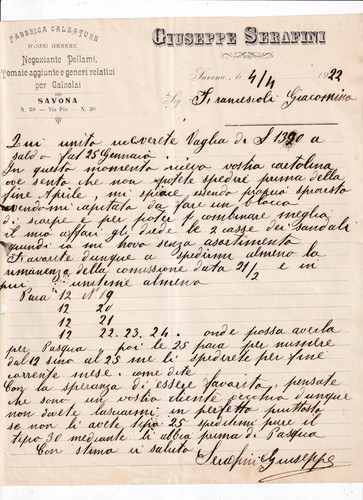 FABRICA CALZATURE
D'OGNI GENERE
Negoziante Pellami,
Tomaie aggiunte e generi relativi
per Calzolai
SAVONA
N. 30 - Via Pia - N. 30
GIUSEPPE SERAFINI
Savona, li 4/4 1922
Sig. Francescoli Giacomino
Qui unito riceverete Vaglia di £ 1390 a
saldo fat 25 Gennaio.
In questo momento ricevo vostra cartolina
ove sento che non potete spedire prima della
fine Aprile, mi spiace, essendo proprio sprovisto
avendomi capitata da fare un blocco
di scarpe e per poter combinare meglio
il mio affari gli diede le 2 casse dei Sandali
quindi io mi trovo senza assortimento
Favorite dunque a spedirmi almeno la
rimanenza della comissione data 21/2 e in
più unitemi almeno
Paia 12 N 19
12 20
12 21
12 22. 23. 24. onde possa averla
per Pasqua, poi le 25 paia per numero
dal 12 sino al 25 me li spedirete per fine
corrente mese. come dite
Con la speranza di essere favorito, pensate
che sono un vostro cliente vecchio dunque
non dovete lasciarmi in perfetto piuttosto
se non li avete tipo 25 speditemi pure il
tipo 30 mediante li abbia prima di Pasqua
Con stima vi saluto
Serafini Giuseppe